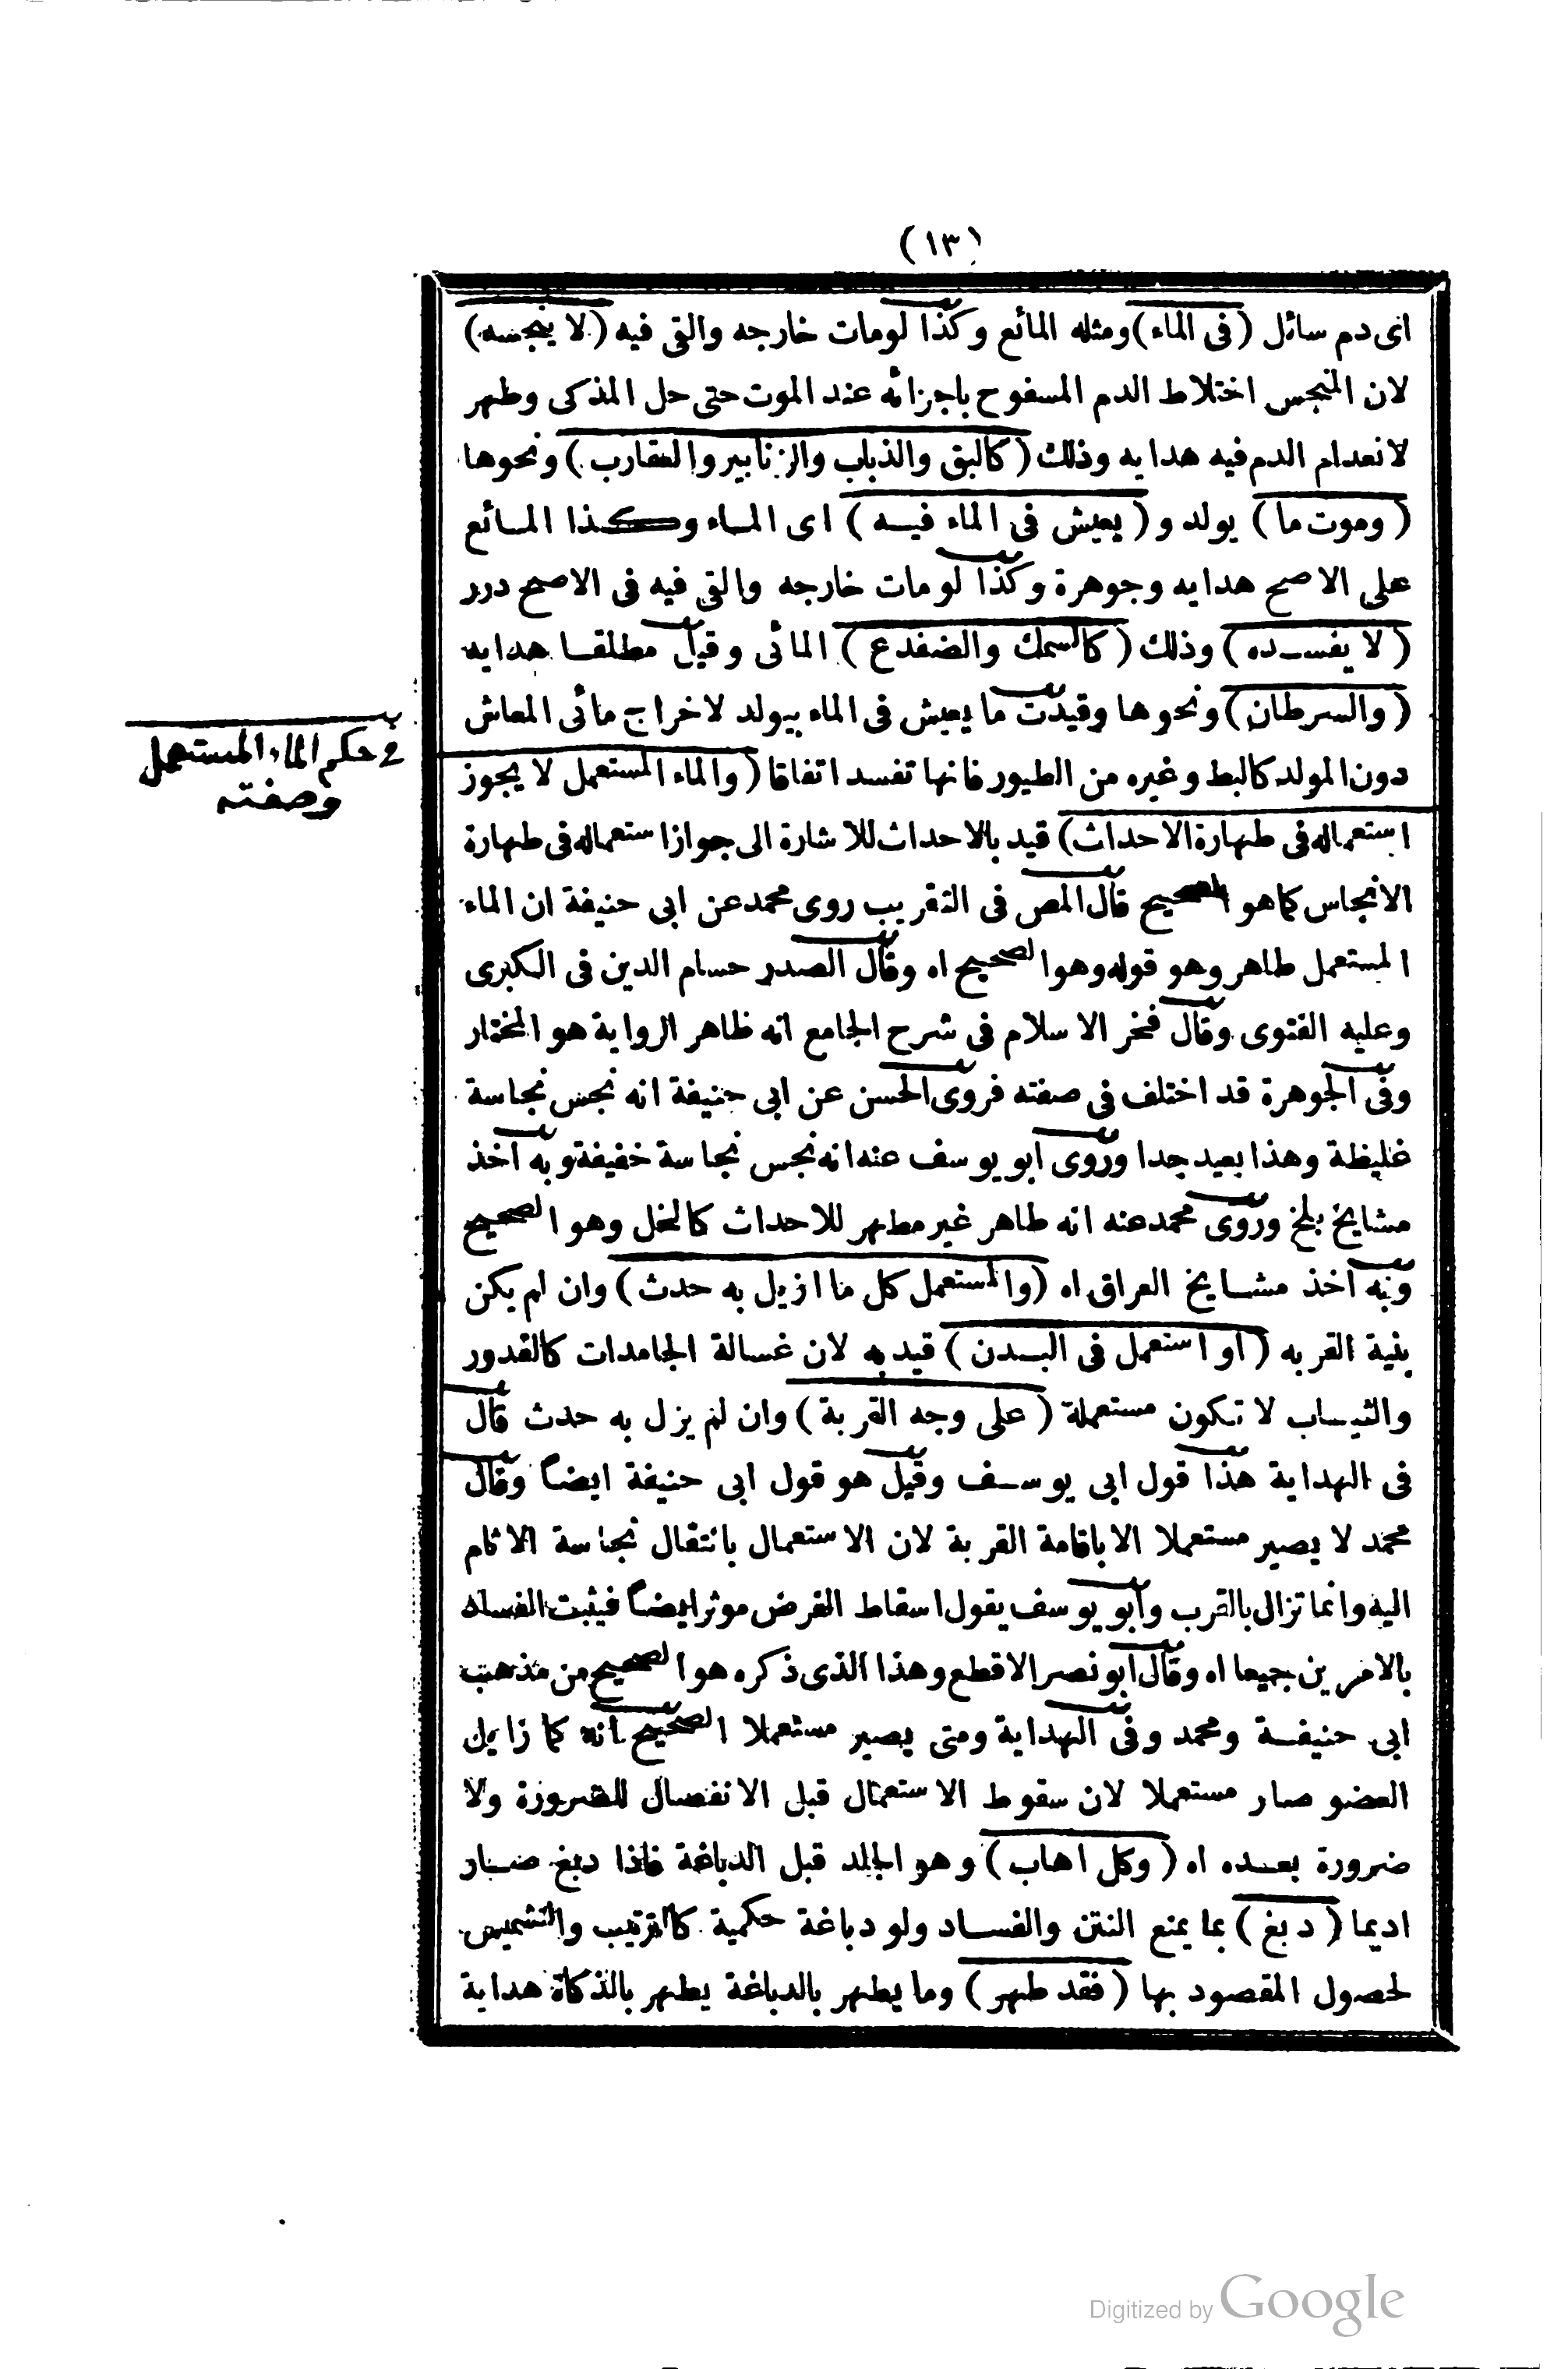 (١٣)
اى دم سائل (فى الماء) ومثله المائع وكذا لومات خارجه والقى فيه (لا ينجسه)
لان المنجس اختلاط الدم المسفوح باجزائه عند الموت حتى حل المذكى وطهر
لانعدام الدم فيه هدايه وذلك (كالبق والذباب والزنابير والعقارب) ونحوها
(وموت ما) يولد و (يعيش فى الماء فيه) اى الماء وكذا المائع
على الاصح هدايه وجوهرة وكذا لومات خارجه والقى فيه فى الاصح درر
(لا يفسده) وذلك (كالسمك والضفدع) المائى وقيل مطلقا هدايه
(والسرطان) ونحوها وقيدت ما يعيش فى الماء بيولد لاخراج مائى المعاش
دون المولد كالبط وغيره من الطيور فانها تفسد اتفاقا (والماء المستعمل لا يجوز
فى حكم الماء المستعمل
وصفته
استعماله فى طهارة الاحداث) قيد بالاحداث للاشارة الى جواز استعماله فى طهارة
الانجاس كما هو الصحيح قال المص فى التقريب روى محمد عن ابى حنيفة ان الماء
المستعمل طاهر وهو قوله وهو الصحيح اه وقال الصدر حسام الدين فى الكبرى
وعليه الفتوى وقال فخر الاسلام فى شرح الجامع انه ظاهر الرواية هو المختار
وفى الجوهرة قد اختلف فى صفته فروى الحسن عن ابى حنيفة انه نجس نجاسة
غليظة وهذا بعيد جدا وروى ابو يوسف عنه انه نجس نجاسة خفيفة وبه اخذ
مشايخ بلخ وروى محمد عنه انه طاهر غير مطهر للاحداث كالخل وهو الصحيح
وبه اخذ مشايخ العراق اه (والمستعمل كل ما ازيل به حدث) وان لم يكن
بنية القربه (او استعمل فى البدن) قيد به لان غسالة الجامدات كالقدور
والثياب لا تكون مستعملة (على وجه القربة) وان لم يزل به حدث قال
فى الهداية هذا قول ابى يوسف وقيل هو قول ابى حنيفة ايضاً وقال
محمد لا يصير مستعملا الا باقامة القربة لان الاستعمال بانتقال نجاسة الاثام
اليه وانما تزال بالقرب وابو يوسف يقول اسقاط الفرض موثر ايضاً فيثبت الفساد
بالامرين جميعا اه وقال ابو نصر الاقطع وهذا الذى ذكره هو الصحيح من مذهب
ابى حنيفة ومحمد وفى الهداية ومتى يصير مستعملا الصحيح انه كما زايل
العضو صار مستعملا لان سقوط الاستعمال قبل الانفصال للضرورة ولا
ضرورة بعده اه (وكل اهاب) وهو الجلد قبل الدباغة فاذا دبغ صار
اديما (دبغ) بما يمنع النتن والفساد ولو دباغة حكمية كالتتريب والتشميس
لحصول المقصود بها (فقد طهر) وما يطهر بالدباغة يطهر بالذكاة هداية
Digitized by Google